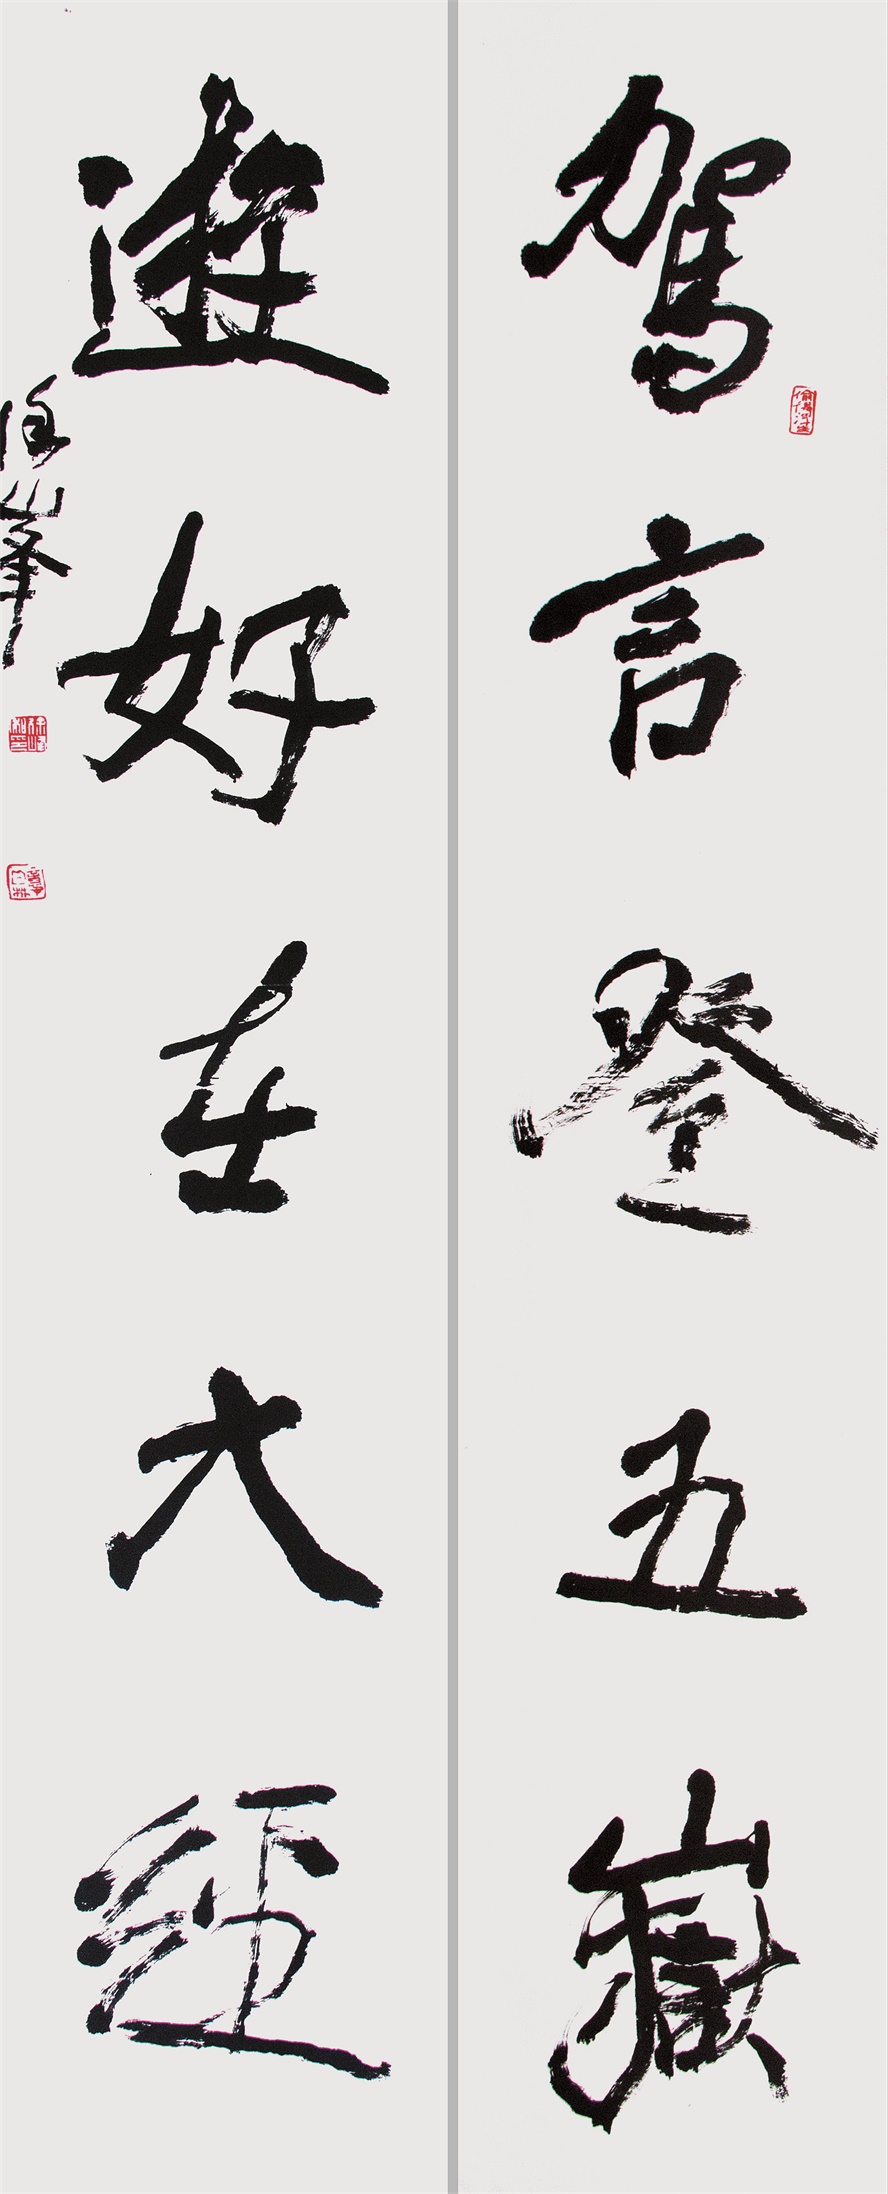 駕言登五嶽
遊好在六經
徐峯